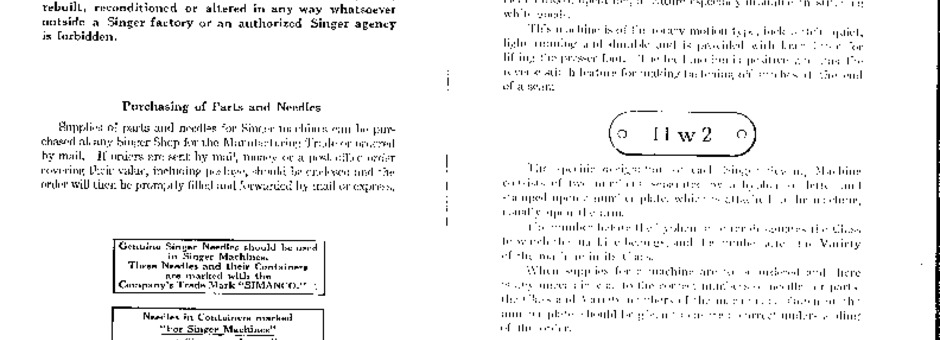 rebuilt, reconditioned or altered in any way whatsoever
outside a Singer factory or an authorized Singer agency
is forbidden.
Purchasing of Parts and Needles
Supplies of parts and needles for Singer machines can be pur-
chased at any Singer Shop for the Manufacturing Trade or ordered
by mail. If orders are sent by mail, money or a post office order
covering their value, including postage, should be enclosed and the
order will then be promptly filled and forwarded by mail or express.
Genuine Singer Needles should be used
in Singer Machines.
These Needles and their Containers
are marked with the
Company's Trade Mark "SIMANCO."
Needles in Containers marked
"For Singer Machines"
white goods.
This machine is of the rotary motion type, lock stitch, quiet,
light running and durable and is provided with knee lifter for
lifting the presser foot. The feed motion is positive and has the
reverse stitch feature for making fastening off stitches at the end
of a seam.
11 w 2
The specific designation of each Singer Sewing Machine
consists of two numbers separated by a hyphen or letter and
stamped upon a number plate, which is attached to the machine,
usually upon the arm.
The number before the hyphen or letter designates the Class
to which the machine belongs, and the number after the Variety
of the machine in its Class.
When supplies for a machine are to be ordered and there
is any uncertainty as to the correct numbers of needles or parts,
the Class and Variety numbers of the machine as shown on the
number plate should be given to insure a correct understanding
of the order.